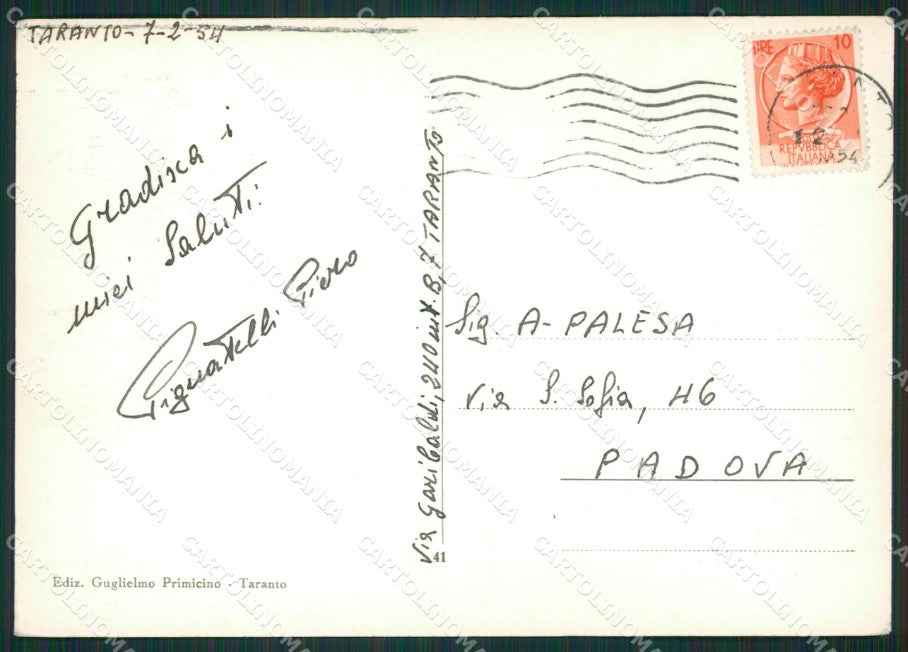 TARANTO - 7-2-54
Gradisca i
miei Saluti:
Pignatelli Piero
Via Garibaldi, 240 int. B, 7 TARANTO
LIRE 10
REPVBBLICA
ITALIANA
12
54
Sig. A- PALESA
Via S. Sofia, 46
PADOVA
41
Ediz. Guglielmo Primicino - Taranto
CARTOLINOMANIA